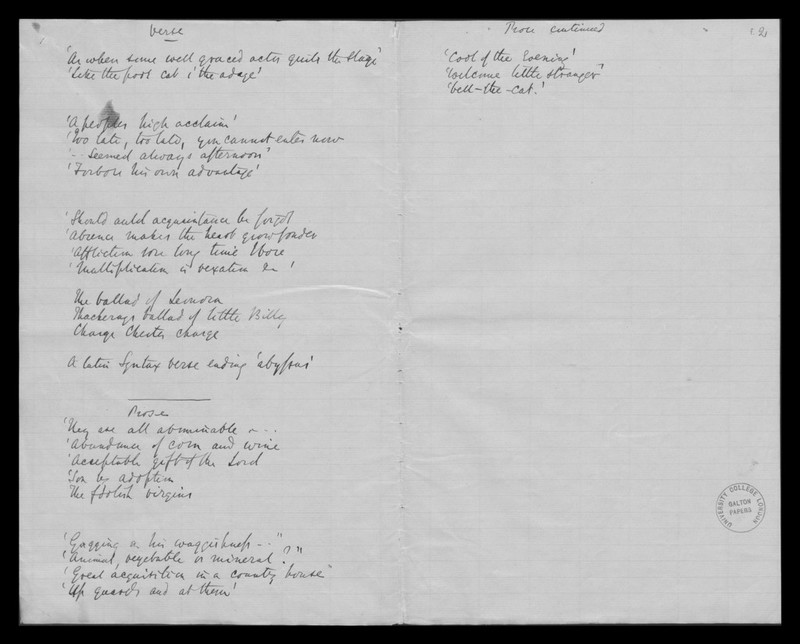 Verse
'As when some well graced actor quits the stage'
'Like the poor cat i' the adage'
'A peoples high acclaim'
'Too late, too late, you cannot enter now
'-- Seemed always afternoon'
'Forbore his own advantage'
'Should auld acquaintance be forgot
'Absence makes the heart grow fonder
'Affliction sore long time I bore
'Multiplication is vexation &c '
The ballad of Leonora
Thackerays ballad of little Billy
Charge Chester charge
A latin Syntax verse ending 'abyssus'
Prose
'They are all abominable
'Abundance of corn and wine
'Acceptable gift of the Lord
Son by adoption
The foolish virgins
'Gagging in his waggishness --"
'Animal, vegetable or mineral ?"
'Great acquisition in a country house"
'Up guards and at them'
Prose continued
(2)
'Cool of the Evening'
'Welcome little stranger'
'bell-the-cat.'
UNIVERSITY COLLEGE LONDON
GALTON
PAPERS